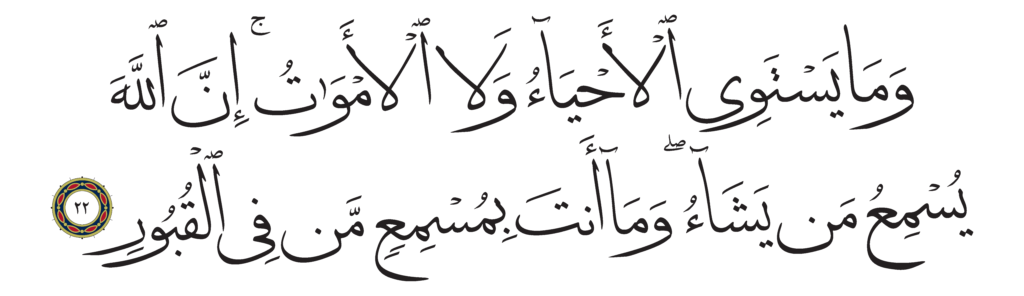 وَمَا يَسْتَوِى ٱلْأَحْيَآءُ وَلَا ٱلْأَمْوَٰتُ ۚ إِنَّ ٱللَّهَ
يُسْمِعُ مَن يَشَآءُ ۖ وَمَآ أَنتَ بِمُسْمِعٍ مَّن فِى ٱلْقُبُورِ ٢٢